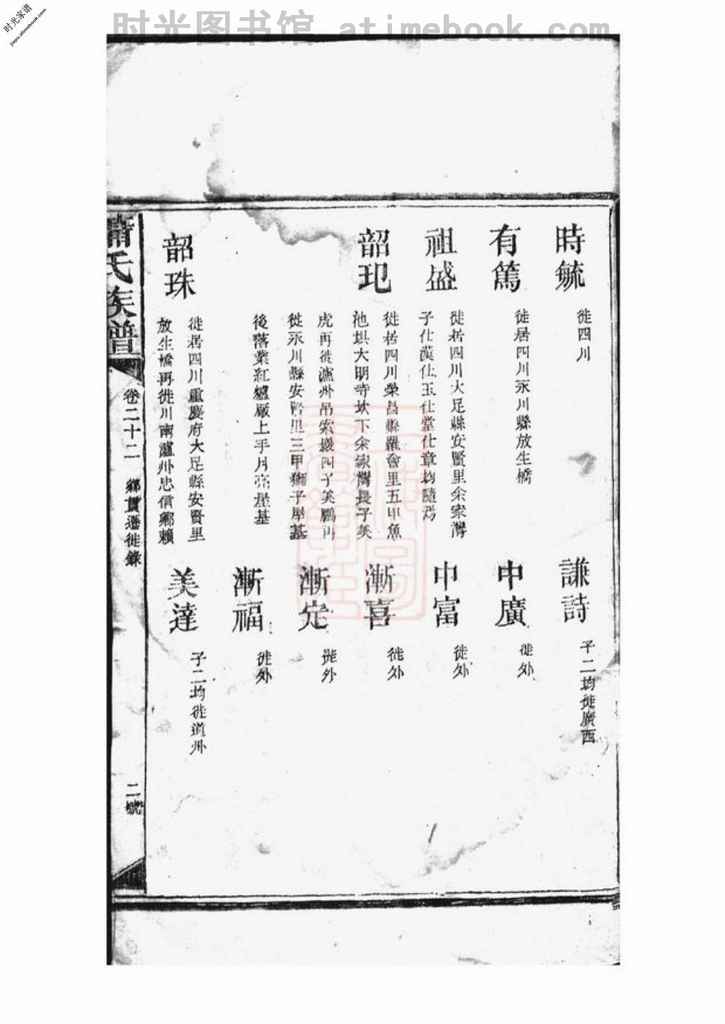 时光图书馆 atimebook.com
时光家谱
時毓
徙四川
謙詩
子二均徙廣西
有篤
徙居四川永川縣放生橋
申廣
徙外
祖盛
徙居四川大足縣安賢里余家灣
子仕漢仕玉仕堂仕章均隨焉
申富
徙外
韶玘
徙居四川榮昌縣羅會里五甲魚
池垻大明寺坎下余家灣長子美
虎再徙瀘州吊索巖四子美鵬再
徙永川縣安賢里三甲獅子屋基
後落業紅爐廠上手月亮屋基
漸喜
徙外
漸定
徙外
漸福
徙外
韶珠
徙居四川重慶府大足縣安賢里
放生橋再徙川南瀘州忠信鄉賴
美達
子二均徙道州
蕭氏族譜
卷二十二
鄉貫遷徙錄
二號